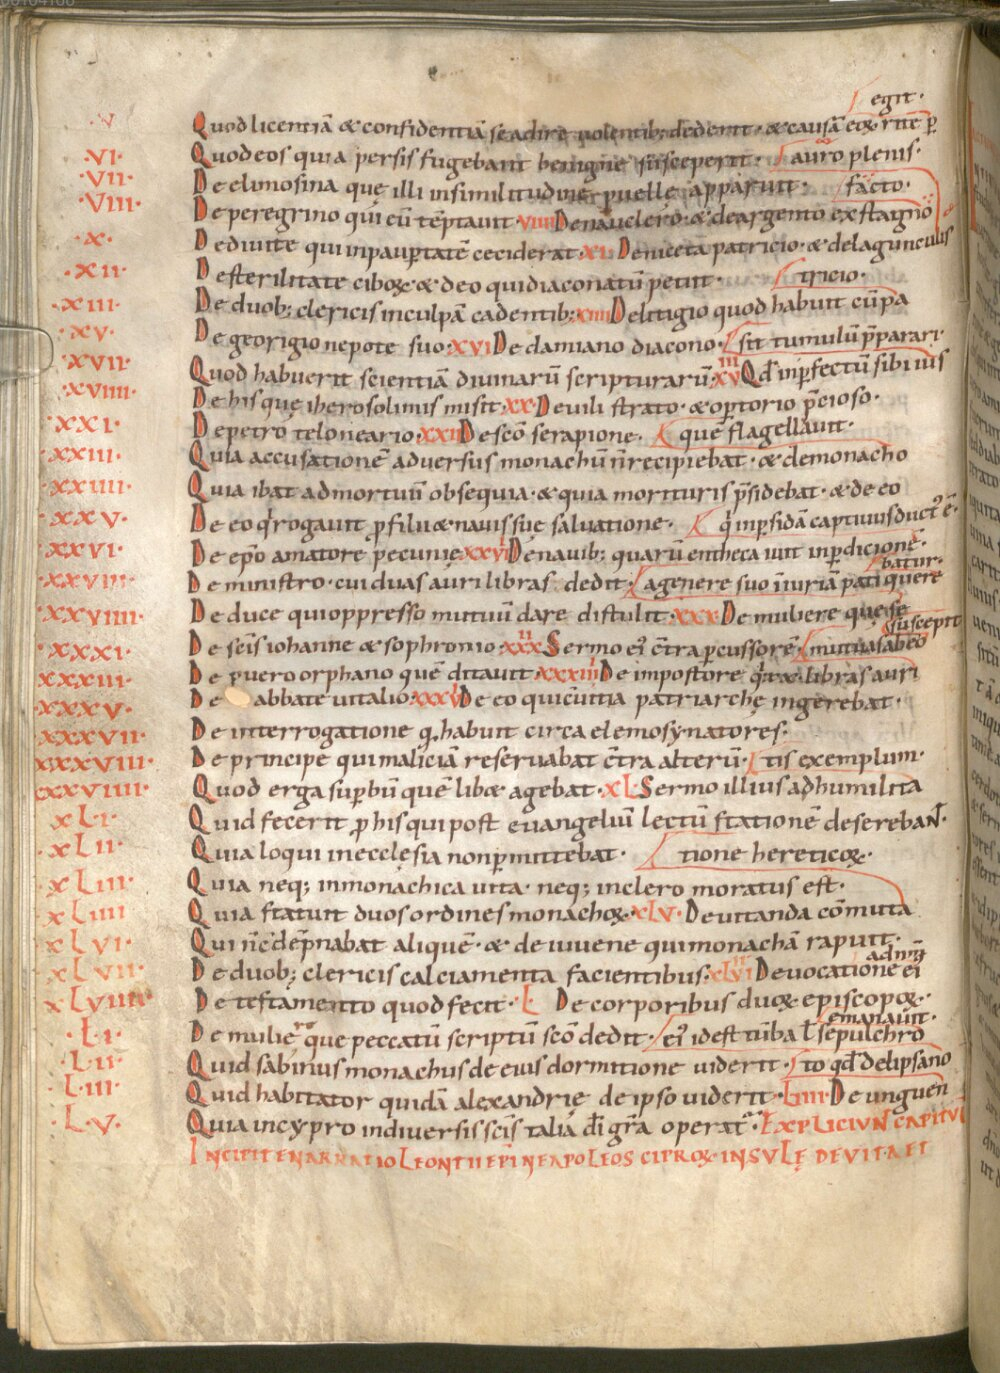 egit·
·V· Quod licentiā & confidentiā se adire volentib; dederit· & causā eoꝝ rite ꝑ
·VI· Quod eos qui a persis fugebant benigne susceperit· auro plenis·
·VII· De elimosina quę illi in similitudine puellę apparuit· facto·
·VIII· De peregrino qui eū tēptauit ·VIIII De nauclero· & de argento ex stagno
·X· De diuite qui in paup̱tatē ceciderat ·XI· De niceta patricio· & de lagunculis
·XII· De sterilitate ciboꝝ & de eo qui diaconatū petiit· tricio·
·XIII· De duob; clericis in culpā cadentib; ·XIIII De litigio quod habuit cū pa
·XV· De georigio nepote suo ·XVI De damiano diacono· sit tumulū p̄parari·
·XVII· Quod habuerit scientiā diuinarū scripturarū ·XVIII Qđ inp̱fectū sibi ius
·XVIIII· De his quę iherosolimis misit ·XX· De uili strato· & op̱torio p̄cioso·
·XXI· De petro teloneario ·XXII De sc̄o serapione· quē flagellauit·
·XXIII· Quia accusationē aduersus monachū n̄ recipiebat· & de monacho
·XXIIII· Quia ibat ad mortuū obsequia· & quia morituris p̄sidebat· & de eo
·XXV· De eo q' rogauit ꝓ filii & nauis suę saluatione· q' in p̱sidā captiuus duct' ē·
·XXVI· De ep̄o amatore pecunię ·XXVII De nauib; quarū entheca iuit in p̱dicionē·
batur·
·XXVIII· De ministro· cui duas auri libras dedit· a genere suo iniuriā pati quere
·XXVIIII· De duce qui oppresso mutuū dare distulit ·XXX· De muliere quę se
suscepit
·XXXI· De sc̄is iohanne & sophronio ·XXXII Sermo ei' c̄tra p̱cussorē· mutua s ab eo
·XXXIII· De puero orphano quē ditauit ·XXXIIII De impostore q' libras auri
·XXXV· De abbate uitalio ·XXXVI De eo qui cuntia patriarchę ingerebat·
·XXXVII· De interrogatione q̄ habuit circa elemosynatores·
·XXXVIII· De principe qui maliciā reseruabat c̄tra alterū· tis exemplum·
XXXVIIII· Quod erga sup̱bū quē agebat ·XL· Sermo illius ad humilita
·XLI· Quid fecerit ꝓ his qui post euangeliū lectū stationē desereban̄t·
·XLII· Quia loqui in ecclęsia non p̱mittebat· tione hereticoꝝ·
·XLIII· Quia neq; in monachica uita· neq; in clero moratus est·
·XLIIII· Quia statuit duos ordines monachoꝝ ·XLV· De uitanda cōmuta
·XLVI· Qui n̄c dēpnabat aliquē· & de iuuene qui monachā rapuit·
·XLVII· De duob; clericis calciamenta facientibus: ·XLVIII De uocatione ei
·XLVIIII· De testamento quod fecit· L· De corporibus duoꝝ episcopoꝝ·
emanauit·
·LI· De muliere que peccatū scriptū sc̄o dedit· ei' id est tūba ł sepulchro
·LII· Quid sabinus monachus de eius dormitione uiderit· to qđ de lipsano
·LIII· Quid habitator quidā alexandrię de ipso uiderit· LIIII· De unguen
·LV· Quia in cypro in diuersis sc̄is talia dī gr̄a operat'· EXPLICIUNT CAPITUL
INCIPIT ENARRATIO LEONTII EPI NEAPOLEOS CIPROꝝ· INSULĘ DE VITA ET